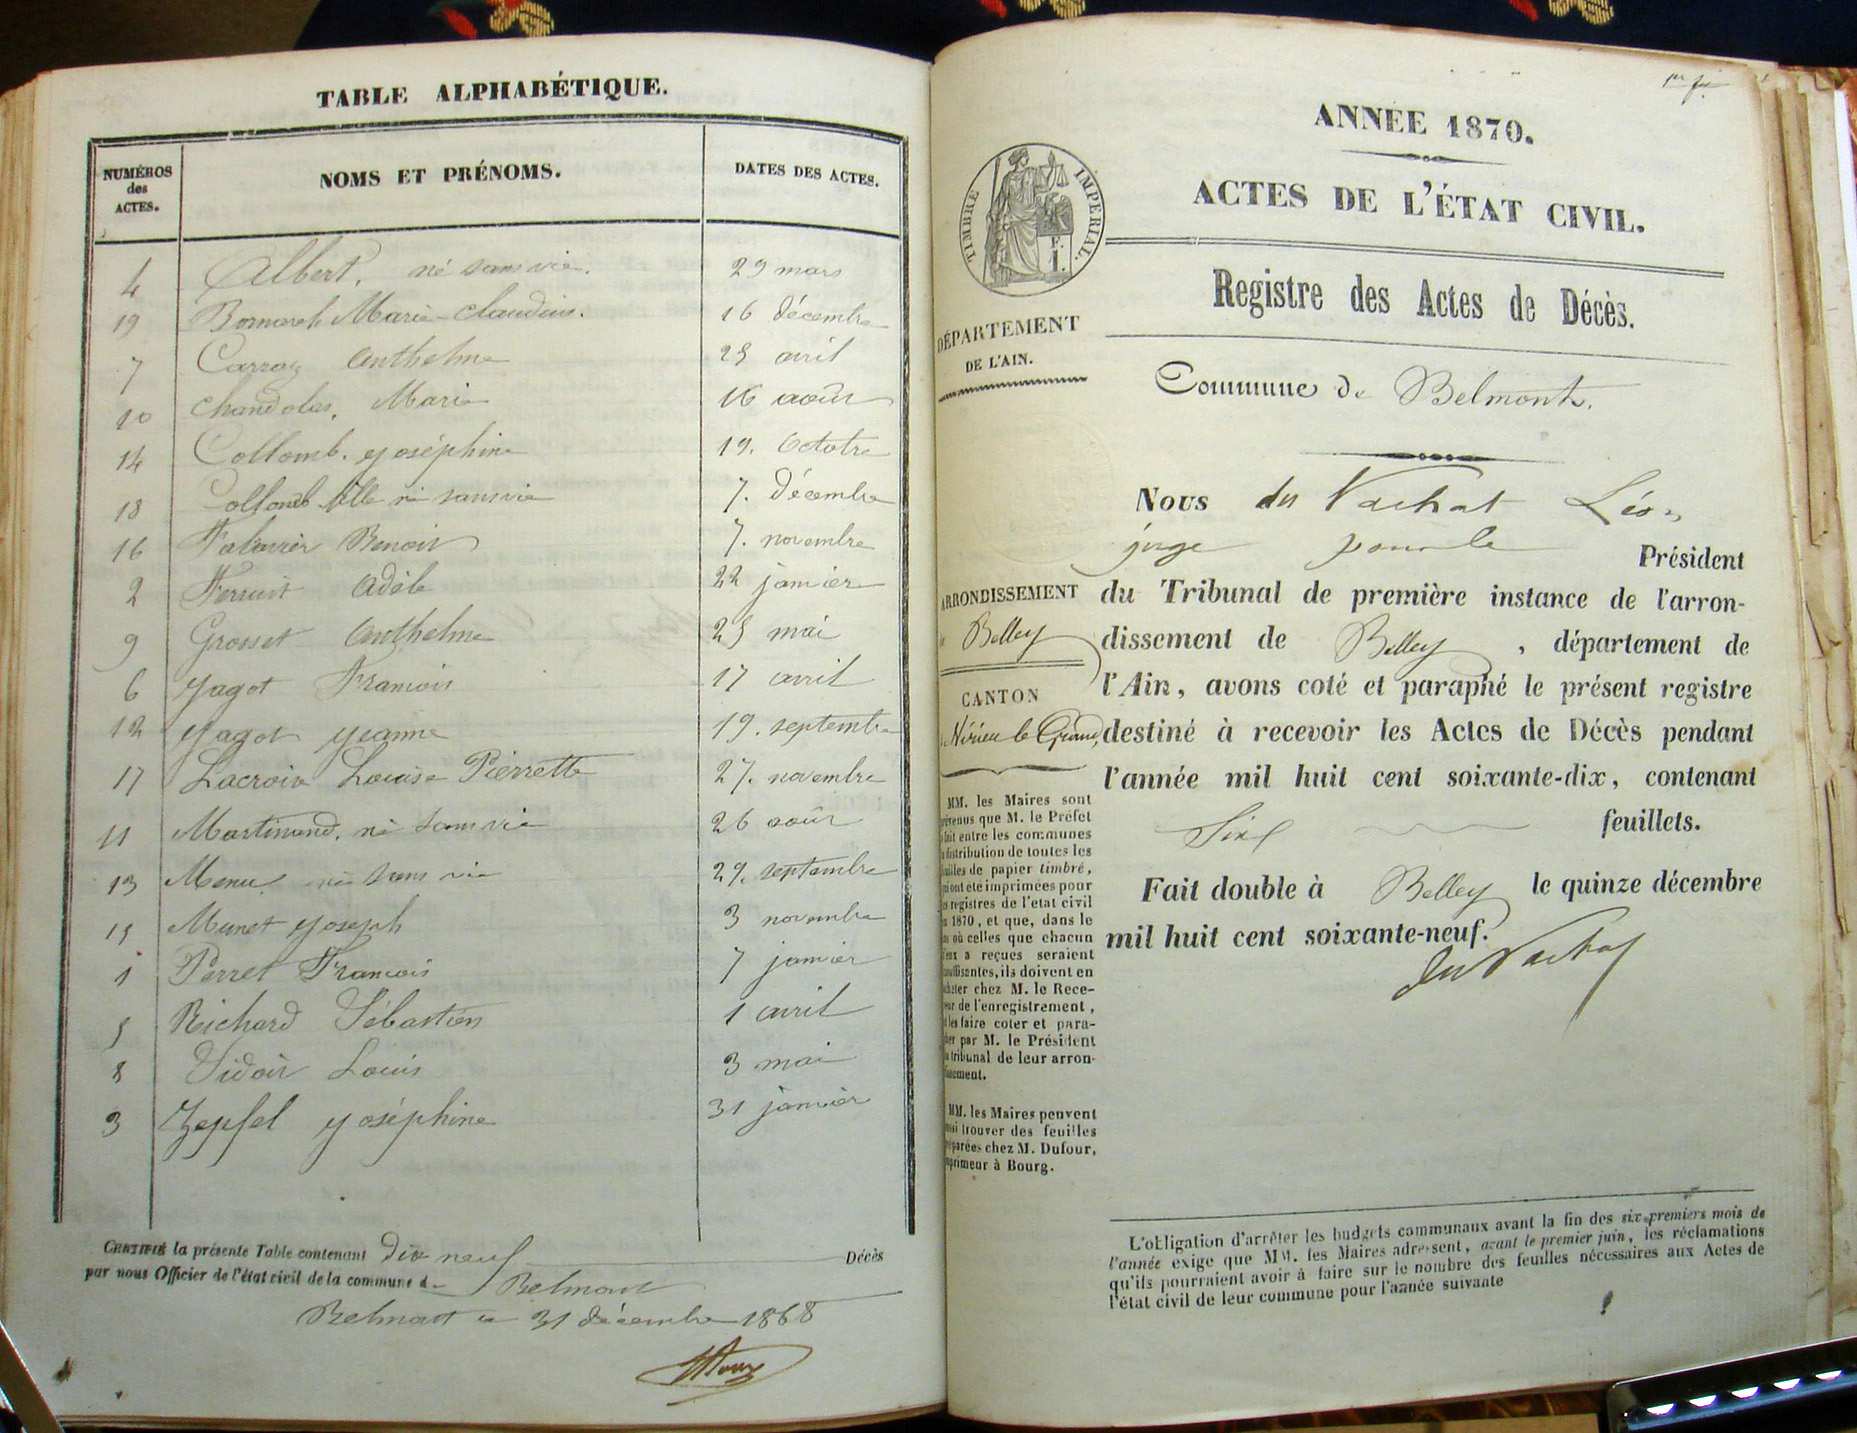 TABLE ALPHABÉTIQUE.
NUMÉROS des ACTES. NOMS ET PRÉNOMS. DATES DES ACTES.
4 Albert, né sans vie. 29 mars
19 Marie-Claudine. 16 décembre
7 Carraz Anthelme 25 avril
10 Chandolas, Marie 16 août
14 Collomb. Joséphine 19. Octobre
18 Collomb fille né sans vie 7. décembre
16 Benoit 7. novembre
2 Adèle 22 janvier
9 Grosset Anthelme 25 mai
6 Jagot François 17 avril
12 Jagot Jeanne 19. septembre
17 Lacroix Louise Pierrette 27. novembre
11 Martinand, né sans vie 26 août
13 Menu né sans vie 29. septembre
15 Munet Joseph 3 novembre
1 Perret François 7 janvier
5 Richard Sébastien 1 avril
8 Louis 3 mai
3 Zepfel Joséphine 31 janvier
CERTIFIÉ la présente Table contenant dix neuf Décès
par nous Officier de l'état civil de la commune de Belmont
Belmont le 31 décembre 1868
1er f.
ANNÉE 1870.
TIMBRE IMPÉRIAL.
ACTES DE L'ÉTAT CIVIL.
Registre des Actes de Décès.
DÉPARTEMENT
DE L'AIN.
Commune de Belmont.
Nous du Vachat Léon
juge pour le Président
du Tribunal de première instance de l'arron-
dissement de Belley, département de
l'Ain, avons coté et paraphé le présent registre
destiné à recevoir les Actes de Décès pendant
l'année mil huit cent soixante-dix, contenant
Six feuillets.
Fait double à Belley le quinze décembre
mil huit cent soixante-neuf.
du Vachat
ARRONDISSEMENT
Belley
CANTON
Virieu le Grand,
MM. les Maires sont
prévenus que M. le Préfet
fait entre les communes
distribution de toutes les
feuilles de papier timbré,
qui ont été imprimées pour
les registres de l'état civil
1870, et que, dans le
cas où celles que chacun
d'eux a reçues seraient
insuffisantes, ils doivent en
acheter chez M. le Rece-
veur de l'enregistrement,
les faire coter et para-
pher par M. le Président
du tribunal de leur arron-
dissement.
MM. les Maires peuvent
aussi trouver des feuilles
préparées chez M. Dufour,
imprimeur à Bourg.
L'obligation d'arrêter les budgets communaux avant la fin des six premiers mois de
l'année exige que MM. les Maires adressent, avant le premier juin, les réclamations
qu'ils pourraient avoir à faire sur le nombre des feuilles nécessaires aux Actes de
l'état civil de leur commune pour l'année suivante